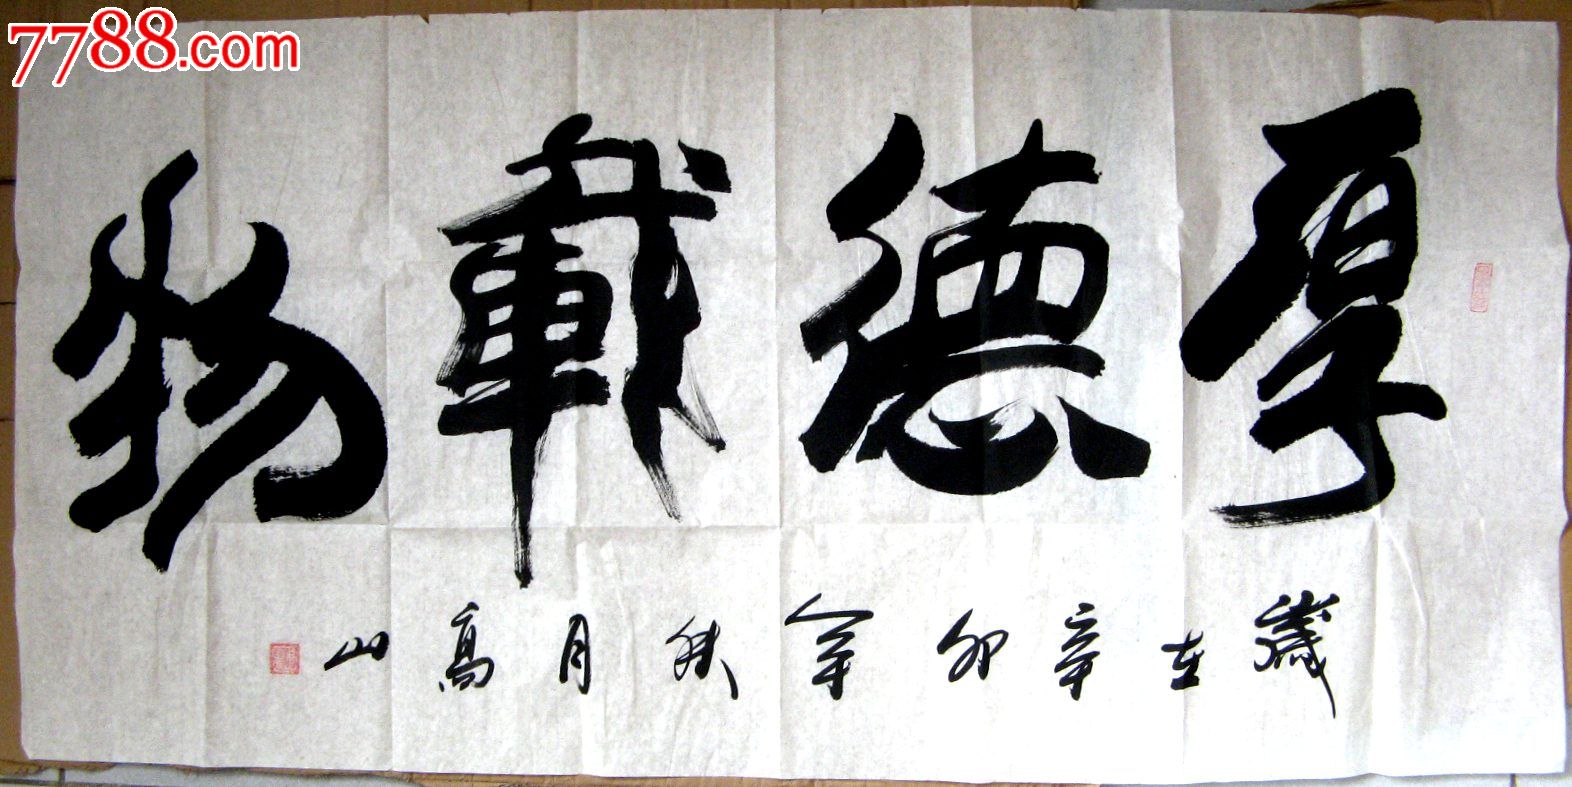 7788.com
厚德載物
歲在辛卯年秋月高山